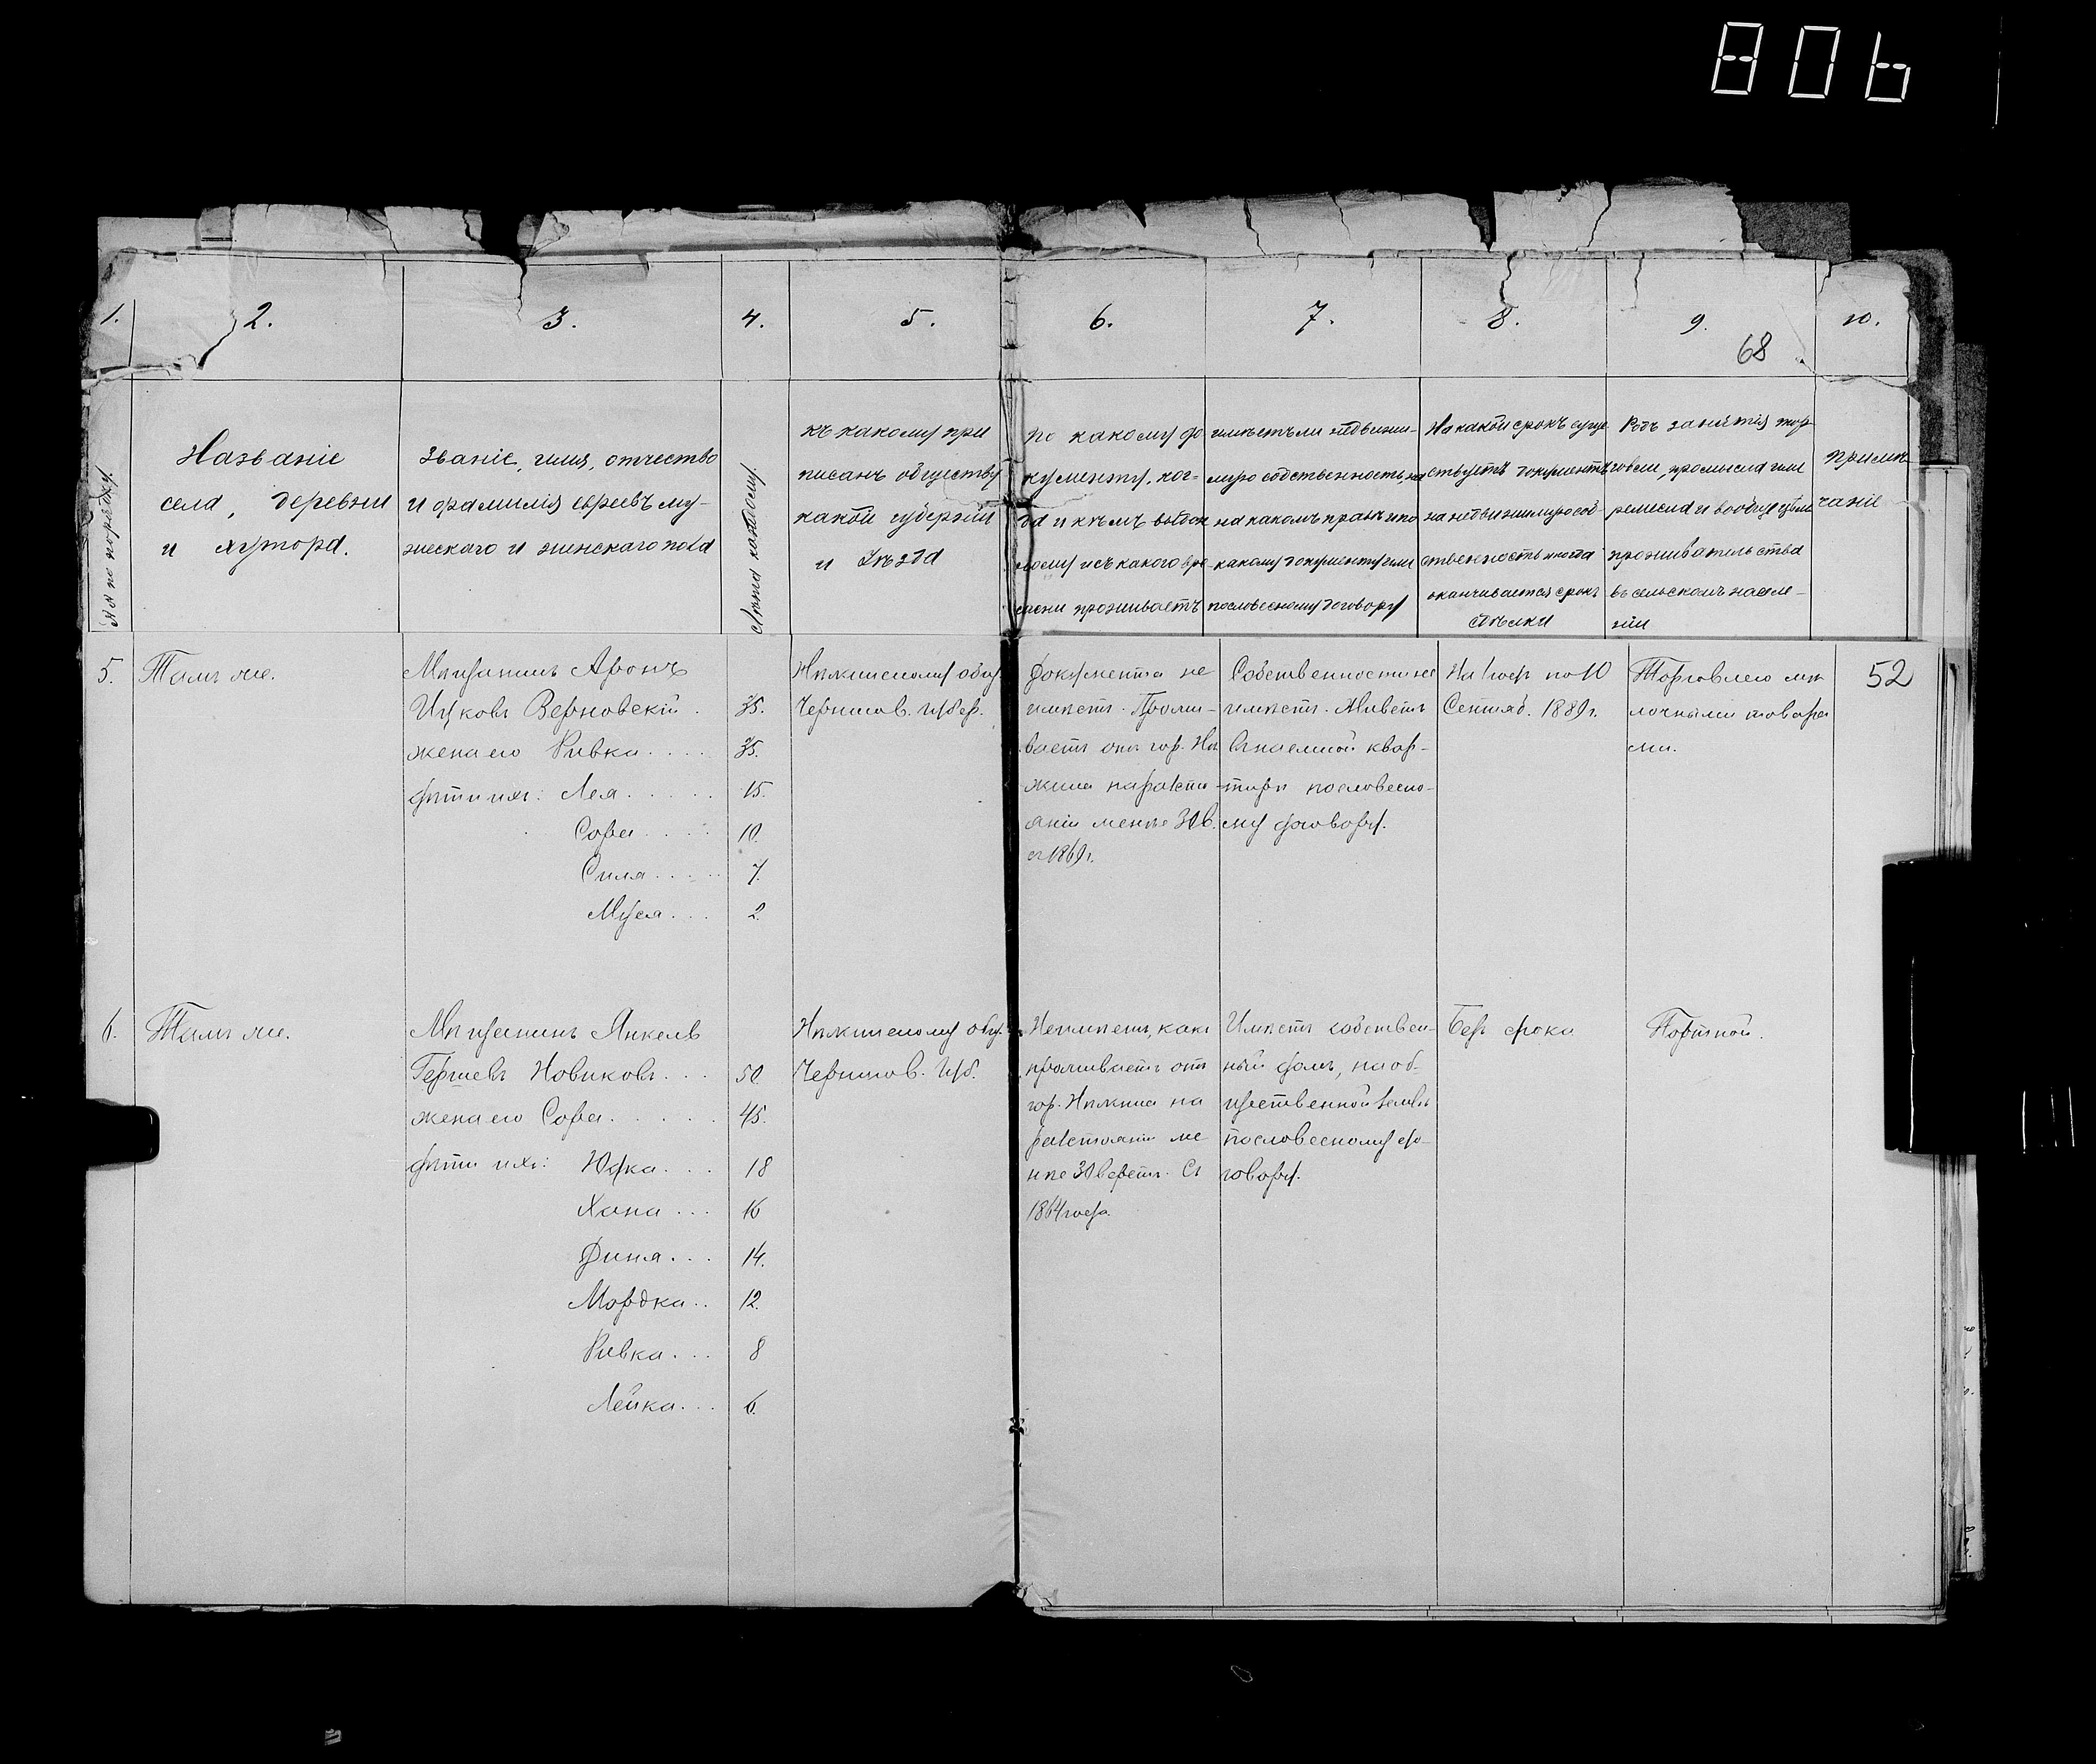 806
1.
2.
3.
4.
5.
6.
7.
8.
9.
10.
68
№№ по порядку.
Названіе
села, деревни
и хутора.
Званіе, имя, отчество
и фамилія евреевъ му-
жескаго и женскаго пола
Лѣта каждому.
къ какому при
писанъ обществу
какой губерніи
и Уѣзда
по какому до
кументу, ког-
да и кѣмъ выдан
ному и съ какого вре-
мени проживаетъ
имѣетъ ли недвижи-
мую собственность, на
на какомъ правѣ и по
какому документу или
по словесному договору
На какой срокъ суще
ствуетъ документъ
на недвижимую соб-
ственность и когда
оканчивается срокъ
сдѣлки
Родъ занятія тор-
говли, промысла или
ремесла и вообще цѣли
проживательства
въ сельскомъ населе-
ніи
примѣ
чаніе
5.
Тамъ же.
Мѣщанинъ Аронъ
Ицковъ Верновскій .
35.
жена его Ривка . . . .
35.
дѣти ихъ: Лея . . . . .
15.
Сора . . . .
10.
Сима . . . . .
7.
Муся . . .
2.
Нѣжинскому общ.
Чернигов. губер.
Документа не
имѣетъ. Прожи-
ваетъ отъ гор. Нѣ
жина на разстоя
яніи менѣе 30 в.
съ 1869 г.
Собственности не
имѣетъ. Живетъ
въ наемной квар-
тирѣ по словесно-
му договору.
На 1 годъ по 10
Сентяб. 1889 г.
Торговлею мѣ
лочными товара
ми.
52
6.
Тамъ же.
Мѣщанинъ Янкель
Гершевъ Новиковъ . . .
50.
жена его Сора . . . . . .
45.
дѣти ихъ: Юдка . . .
18
Хана . . .
16
Дина . . .
14.
Мордка . .
12.
Ривка . . .
8
Лейка . . .
6.
Нѣжинскому общ.
Чернигов. губ.
Не имѣетъ, какъ
проживаетъ отъ
гор. Нѣжина на
разстояніи ме
нѣе 30 верстъ. Съ
1864 года.
Имѣетъ собствен-
ный домъ, на об-
щественной землѣ
по словесному до-
говору.
Безъ срока
Портной.